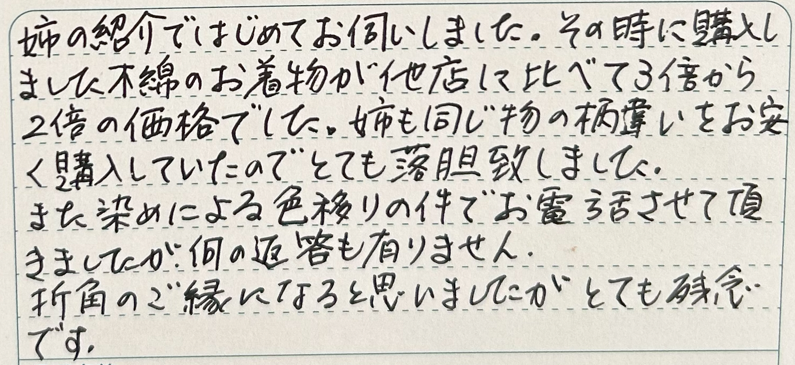 姉の紹介ではじめてお伺いしました。その時に購入し
ました木綿のお着物が他店に比べて3倍から
2倍の価格でした。姉も同じ物の柄違いをお安
く購入していたのでとても落胆致しました。
また染めによる色移りの件でお電話させて頂
きましたが、何の返答も有りません。
折角のご縁になると思いましたがとても残念
です。